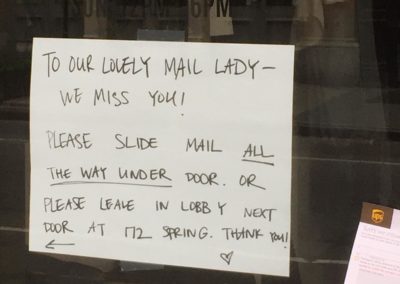 SUN 12PM-6PM
TO OUR LOVELY MAIL LADY—
WE MISS YOU!
PLEASE SLIDE MAIL ALL
THE WAY UNDER DOOR. OR
PLEASE LEAVE IN LOBBY NEXT
DOOR AT 172 SPRING. THANK YOU!
← ♡
ups